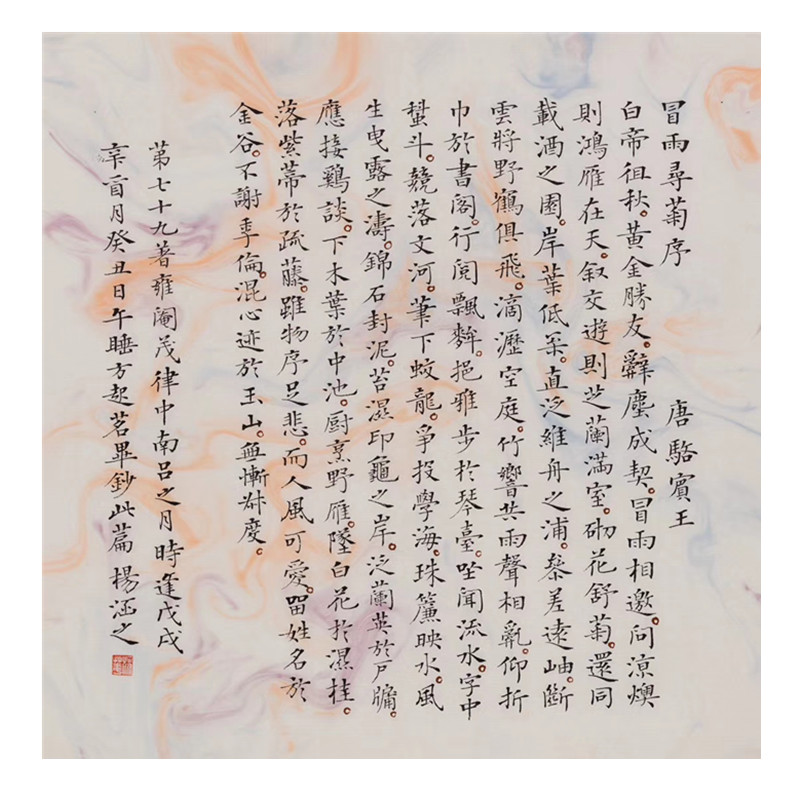 冒雨尋菊序　唐駱賓王
白帝徂秋。黃金勝友。辭塵成契。冒雨相邀。问涼燠
則鴻雁在天。叙交遊則芝蘭滿室。砌花舒菊。還同
載酒之園。岸葉低䒳。直泛維舟之浦。叅差遠岫。斷
雲將野鶴俱飛。滴瀝空庭。竹響共雨聲相亂。仰折
巾於書閣。行閲飄䴬。挹雅步於琴臺。坐聞流水。字中
蟄斗。競落文河。筆下蛟龍。爭投學海。珠簾映水。風
生曳露之濤。錦石封泥。苔濕印龜之岸。泛蘭英於戶牖。
應接鷄談。下木葉於中池。厨烹野雁。墜白花於濕桂。
落紫蒂於疏藤。雖物序足悲。而人風可愛。留姓名於
金谷。不謝季倫。混心迹於玉山。無慚叔度。
苐七十九著雍閹茂律中南呂之月時逢戊戌
辛酉月癸丑日午睡方起茗畢鈔此篇楊涵之